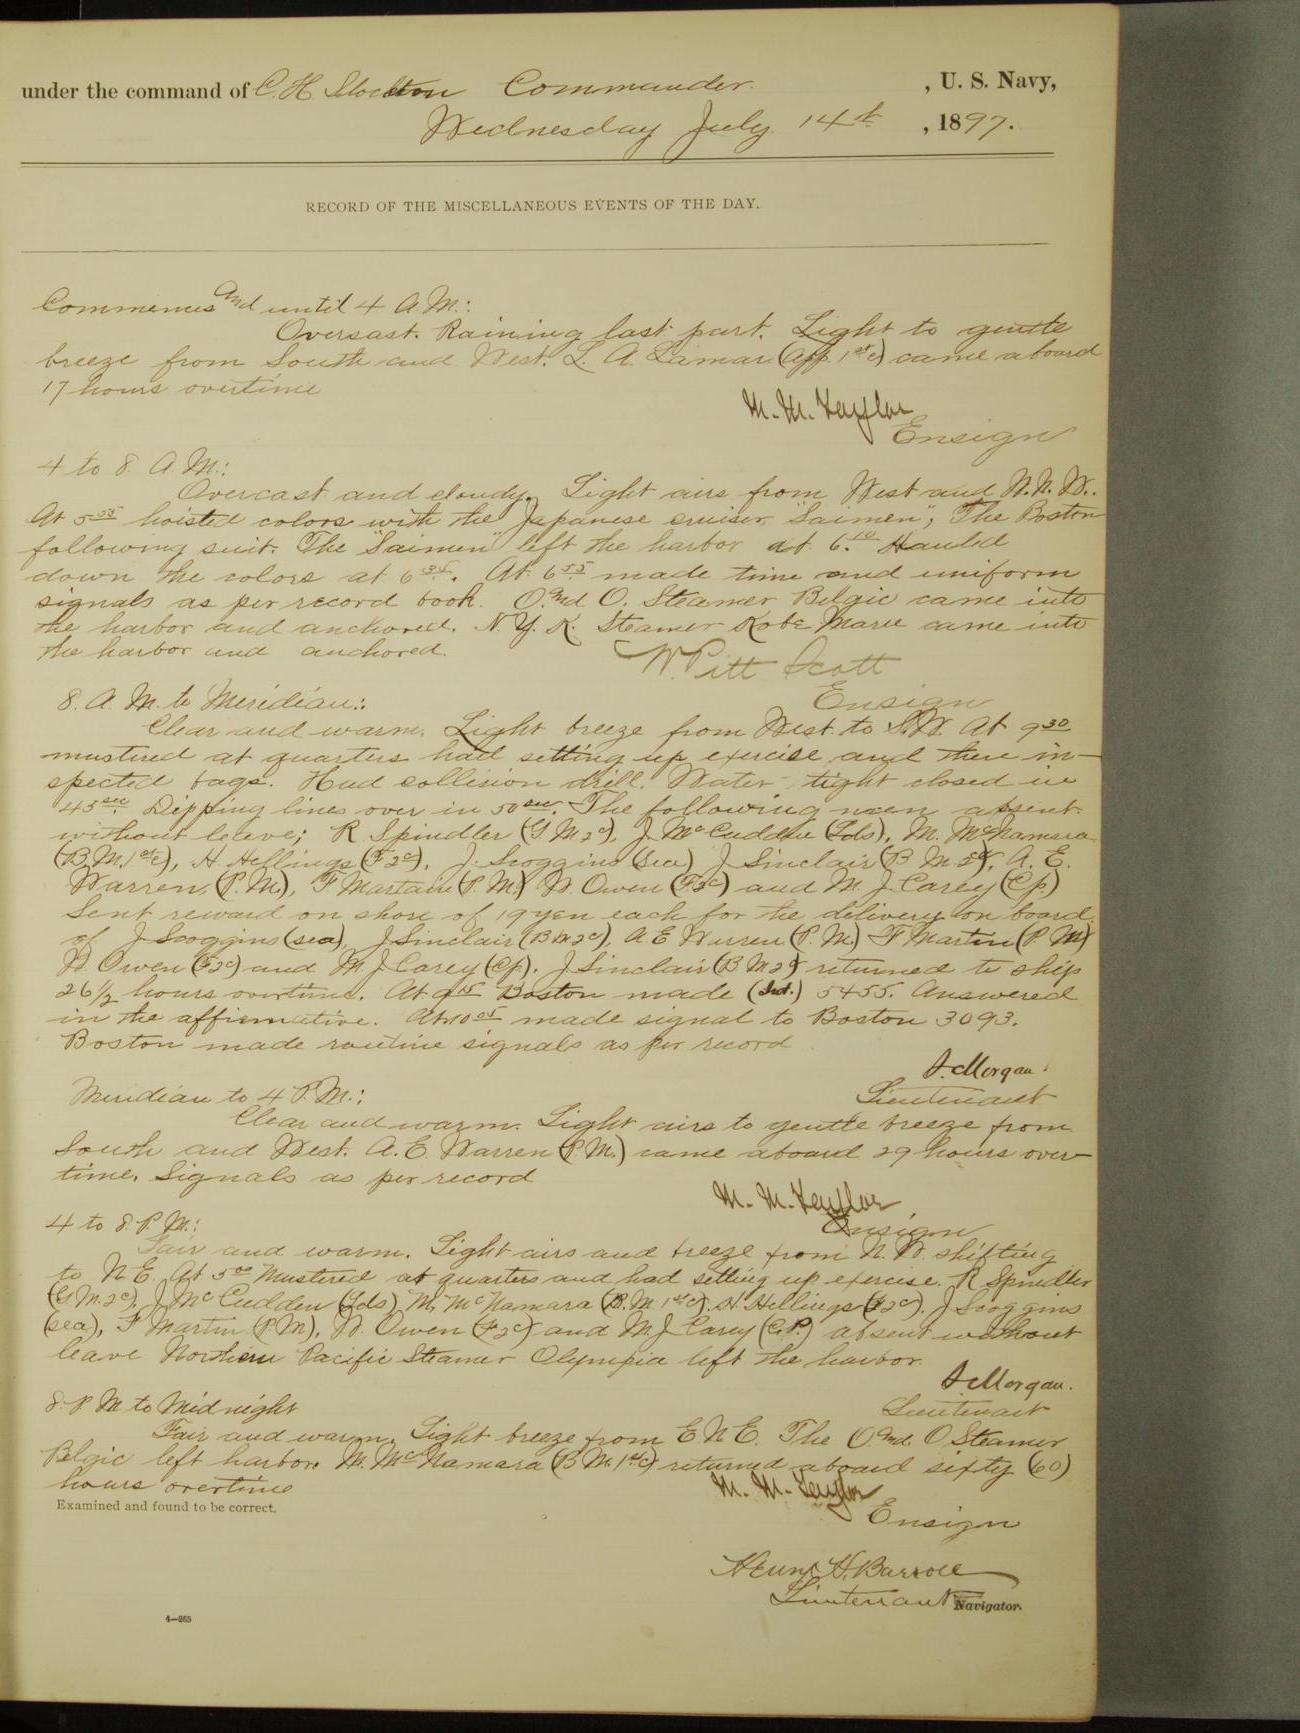 under the command of C. H. Stockton Commander , U. S. Navy,
Wednesday July 14th , 1897.
RECORD OF THE MISCELLANEOUS EVENTS OF THE DAY.
Commences and until 4 A.M.:
Overcast. Raining last part. Light to gentle
breeze from South and West. L. A. Lamar (App. 1st c) came aboard
17 hours overtime
M. M. Taylor
Ensign
4 to 8 A.M.:
Overcast and cloudy. Light airs from West and N.N.W..
At 5 55 hoisted colors with the Japanese cruiser, "Saimen", The Boston
following suit. The "Saimen" left the harbor at 6.10 Hauled
down the colors at 6 34. At 6 55 made time and uniform
signals as per record book. O. and O. Steamer Belgic came into
the harbor and anchored. N. Y. K. Steamer Kobe Maru came into
the harbor and anchored.
W. Pitt Scott
Ensign
8. A. M. to Meridian:.
Clear and warm. Light breeze from West to S.W. At 9 30
mustered at quarters had setting up exercise and then in-
spected bags. Had collision drill. Water-tight closed in
45 sec. Dipping lines over in 50 sec. The following men absent
without leave; R Spindler (G M 2c), J McCudden (Lds), M. McNamara
(B.M. 1st c), H. Hellings (F 2c), J. Scoggins (Sea) J Sinclair (B M 2c), A. E.
Warren, (P. M.), F Martain (P. M.) W. Owen (F.2c) and M. J. Carey (Cp.)
Sent reward on shore of 19 yen each for the delivery on board
of J Scoggins (sea), J Sinclair (B M 2c), A E Warren (P. M.) F Martin (P M)
W Owen (F2c) and M. J Carey (Cp). J Sinclair (B M 2c) returned to ship
26 1/2 hours overtime. At 9 15 Boston made (Int.) 5455. Answered
in the affirmative. At 10 05 made signal to Boston 3093.
Boston made routine signals as per record
J. Morgan.
Lieutenant
Meridian to 4 P.M.:
Clear and warm. Light airs to gentle breeze from
South and West. A. E. Warren (P. M.) came aboard 29 hours over-
time. Signals as per record
M. M. Taylor
Ensign
4 to 8. P. M.:
Fair and warm. Light airs and breeze from N. W. shifting
to N E. At 5 00 Mustered at quarters and had setting up exercise. R Spindler
(G M. 2c), J McCudden (Lds) M. McNamara (B. M. 1st c). H Hellings (F2c), J Scoggins
(sea), F Martin (P M), W. Owen (F2c) and M. J Carey (C.P.) absent without
leave Northern Pacific Steamer Olympia left the harbor.
J. Morgan.
Lieutenant
8. P M to Midnight
Fair and warm. Light breeze from E N E. The O. and O Steamer
Belgic left harbor. M. McNamara (B M. 1st c) returned aboard sixty (60)
hours overtime
M. M. Taylor
Ensign
Examined and found to be correct.
H. Barroll
Lieutenant Navigator.
4—265